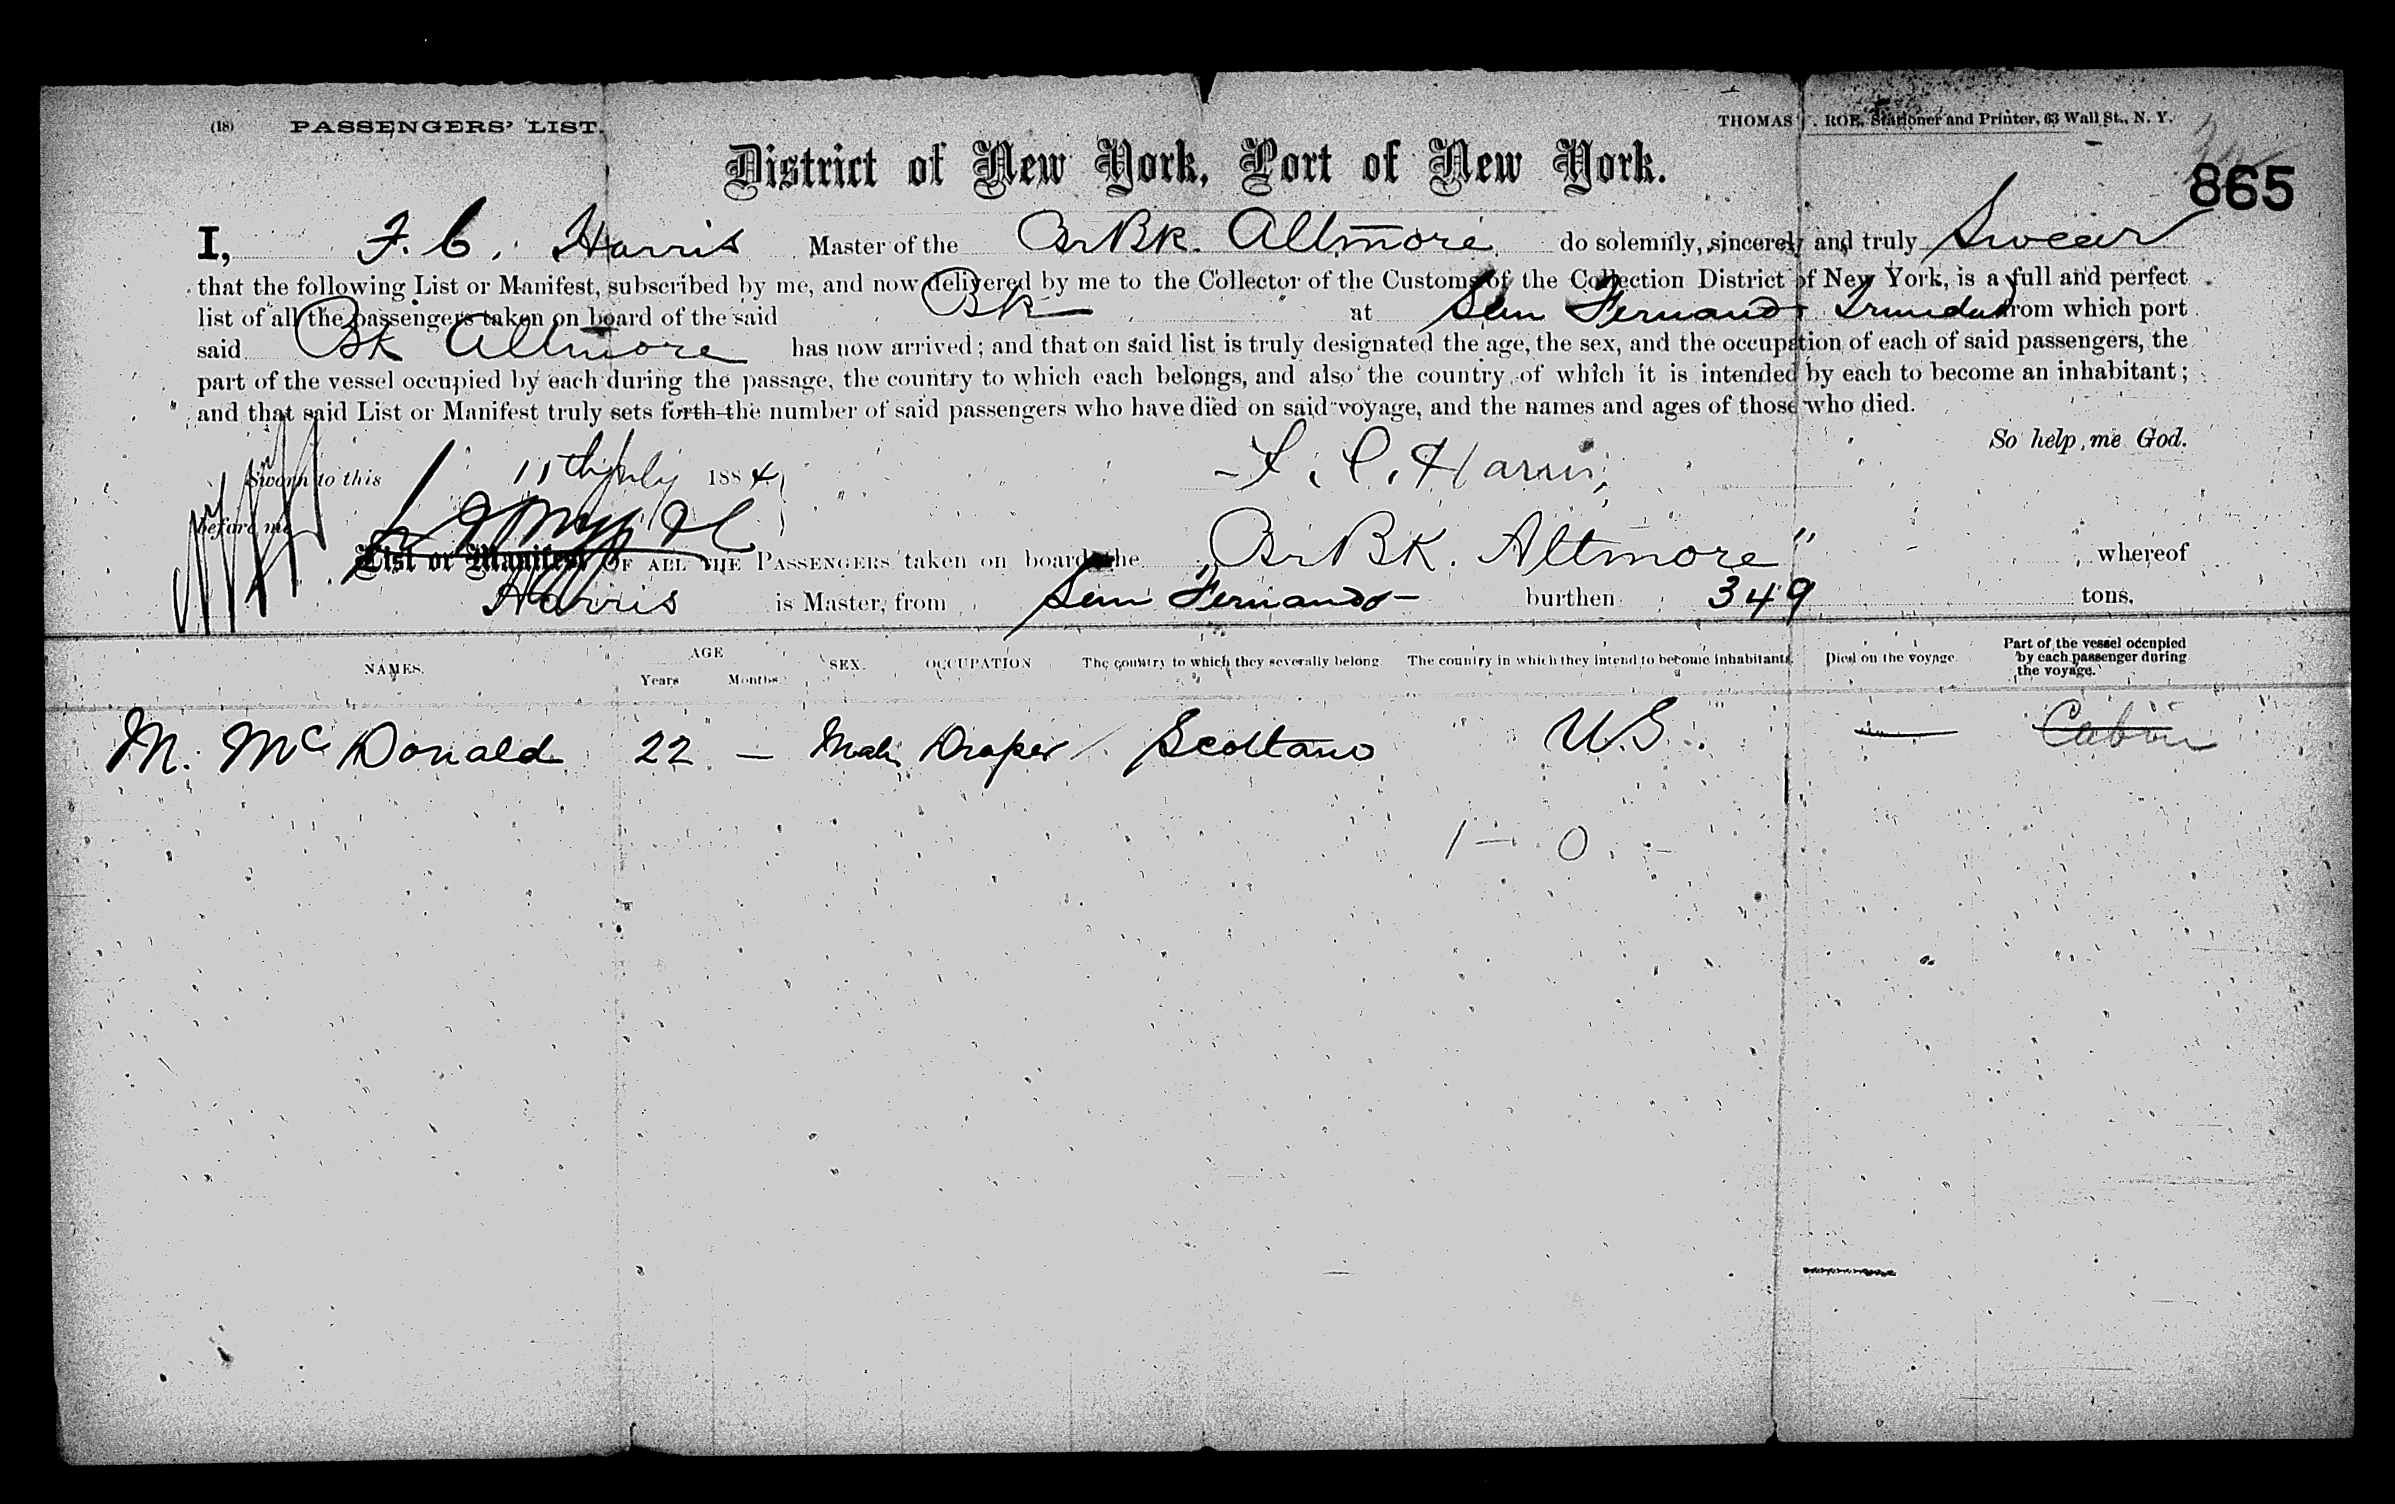 (18) PASSENGERS' LIST. THOMAS . ROE, Stationer and Printer, 63 Wall St., N. Y.
District of New York, Port of New York.
865
I, F. C. Harris Master of the Br Bk. Altmore do solemnly, sincerely and truly Swear
that the following List or Manifest, subscribed by me, and now delivered by me to the Collector of the Customs of the Collection District of New York, is a full and perfect
list of all the passengers taken on board of the said Bk at San Fernando Trinidad from which port
said Bk Altmore has now arrived; and that on said list is truly designated the age, the sex, and the occupation of each of said passengers, the
part of the vessel occupied by each during the passage, the country to which each belongs, and also the country of which it is intended by each to become an inhabitant;
and that said List or Manifest truly sets forth the number of said passengers who have died on said voyage, and the names and ages of those who died.
So help me God.
Sworn to this 11th July 1884 F. C. Harris
before me
List or Manifest OF ALL THE PASSENGERS taken on board the "Br Bk. Altmore" whereof
Harris is Master, from San Fernando - burthen 349 tons.
NAMES. AGE Years Months. SEX. OCCUPATION The country to which they severally belong. The country in which they intend to become inhabitants. Died on the voyage. Part of the vessel occupied by each passenger during the voyage.
M. McDonald 22 — Male Draper Scotland U.S. — Cabin
1 — 0